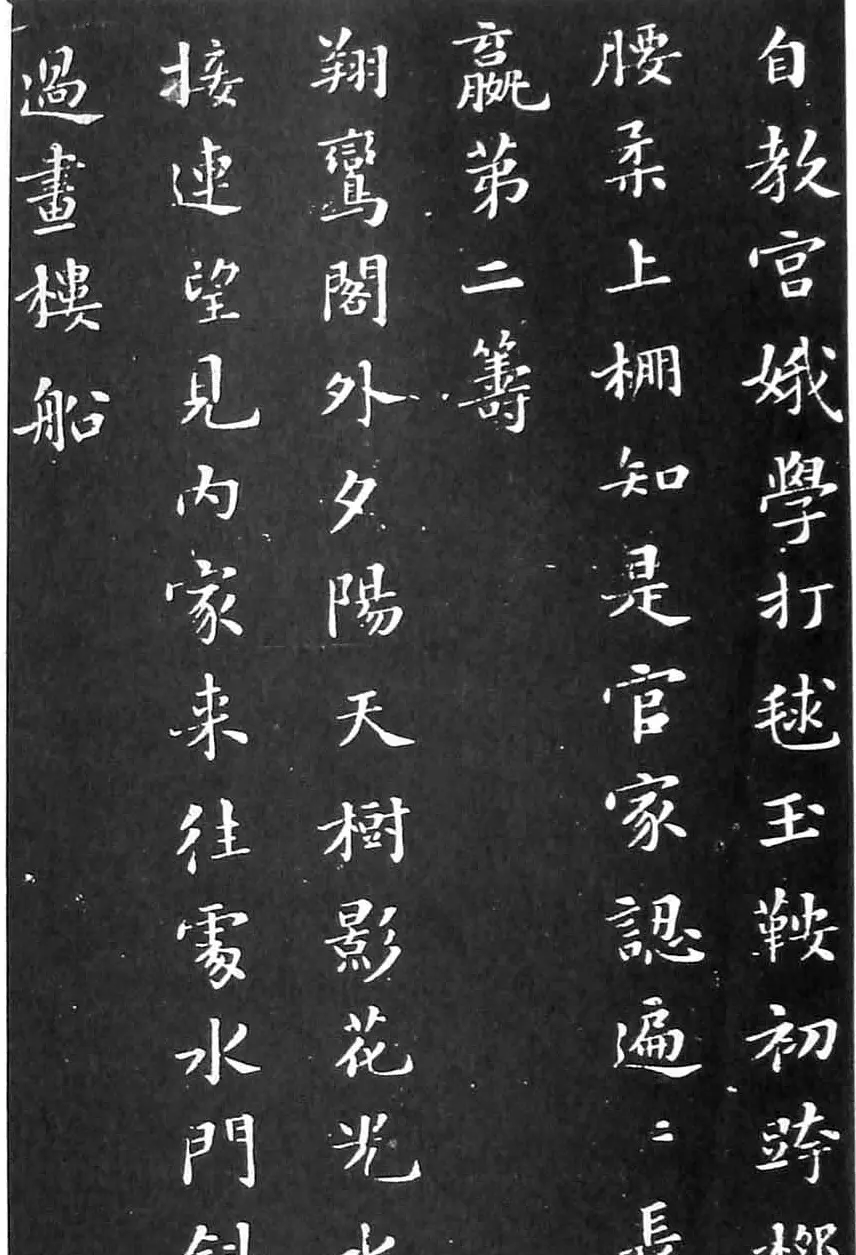 自教宮娥學打毬玉鞍初跨柳
腰柔上棚知是官家認遍〻長
嬴第二籌
翔鸞閣外夕陽天樹影花光
接連望見内家来往處水門
過畫樓船